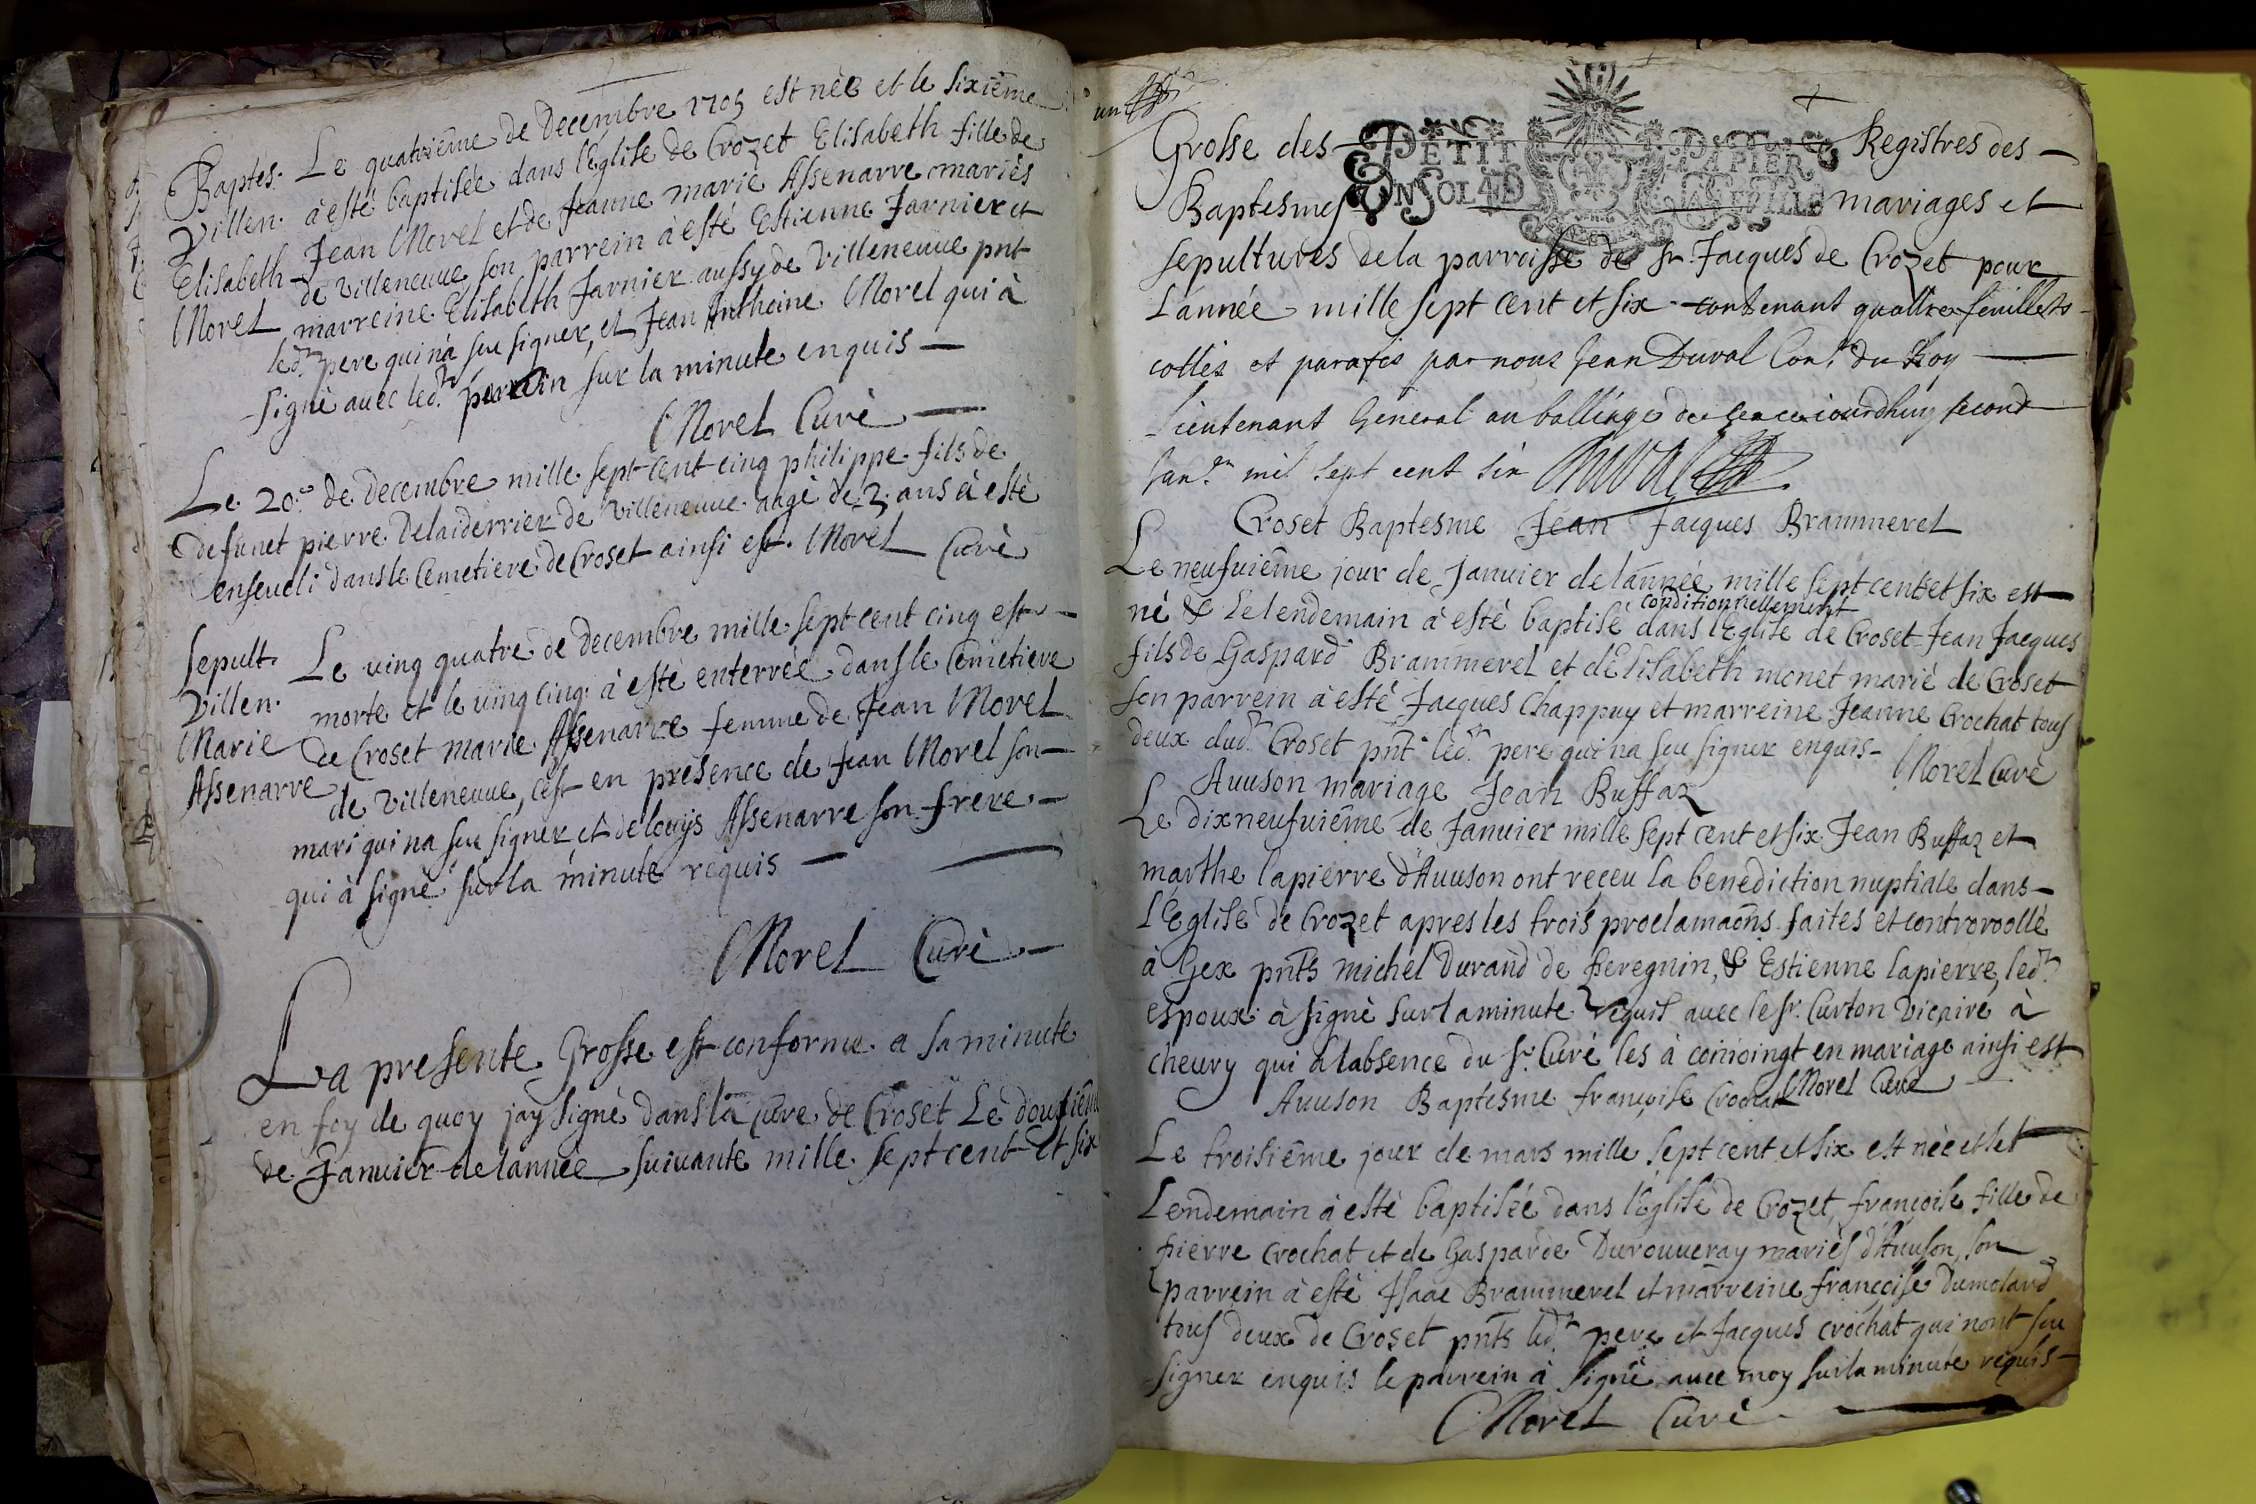 Baptes. Le quatrième de Decembre 1705 est née et le sixième
Villen. à esté baptisée dans l'Eglise de Crozet Elisabeth fille de
Elisabeth Jean Morel et de Jeanne marie Assenarre mariés
Morel de Villeneuve, son parrein à esté Estienne Jarnier et
marreine Elisabeth Jarnier aussy de Villeneuve pnt
led.t pere qui nà seu signer, et Jean Anthoine Morel qui à
signé avec led.t parrein sur la minute enquis —
Morel Curé —
Le 20.e de decembre mille sept cent cinq philippe fils de
defunct pierre Delaiderrier de Villeneuve aagé de 2. ans à esté
enseveli dans le Cemetiere de Croset ainsi est. Morel Curé
Sepult. Le vinq quatre de decembre mille sept cent cinq est —
Villen. morte et le vinq cinq à esté enterrée dans le Cemetiere
Marie de Croset marie Assenarre femme de Jean Morel
Assenarre de Villeneuve, cest en presence de Jean Morel son —
mari qui na seu signer et de louys Assenarre son frere —
qui à signé sur la minute requis —
Morel Curé —
La presente Grosse est conforme a sa minute
en foy de quoy jay signé dans la Cure de Croset Le dousiem
de Janvier de lannée suivante mille sept cent et six
un
Grosse des — PETIT PAPIER Registres des —
Baptesmes EN SOLADS mariages et
sepultures de la parroisse de St. Jacques de Crozet pour
Lannée mille sept cent et six contenant quattre feuillets
cottés et parafés par nous Jean Duval Con.r du Roy —
Lieutenant General au balliage de Gex ce iourdhuy second
Jan.er mil sept cent six Duval
Croset Baptesme Jean Jacques Brammerel
Le neufvième jour de Janvier de lannée mille sept cent et six est
conditionnellement
né & le lendemain à esté baptisé dans l'Eglise de Croset Jean Jacques
fils de Gaspard Brammerel et d'Elisabeth monet marié de Croset
son parrein à esté Jacques Chappuy et marreine Jeanne Crochat tous
deux dud.t Croset pnt led.t pere qui na seu signer enquis — Morel Curé
Avuson mariage Jean Buffaz
Le dixneufvième de Janvier mille sept cent et six Jean Buffaz et
marthe lapierre d'Avuson ont receu la benediction nuptiale dans —
l'Eglise de Crozet apres les trois proclamaons faites et controroollé
à Gex pnts michel Durand de peregnin, & Estienne lapierre, led.t
espoux à signé sur la minute requis avec le sr. Curton Vicaire à
cheury qui à labsence du sr. Curé les à conioingt en mariage ainsi est
Avuson Baptesme françoise Crochat Morel Curé
Le troisième jour de mars mille sept cent et six est née et le
Lendemain à esté baptisée dans l'Eglise de Crozet, françoise fille de
pierre Crochat et de Gasparde Durouveray mariés d'Avuson, son
parrein à esté Isaac Brammerel et marreine françoise Dumolard
tous deux de Croset pnts led.t pere et Jacques crochat qui nont seu
signer enquis le parrein à signé avec moy sur la minute requis —
Morel Curé